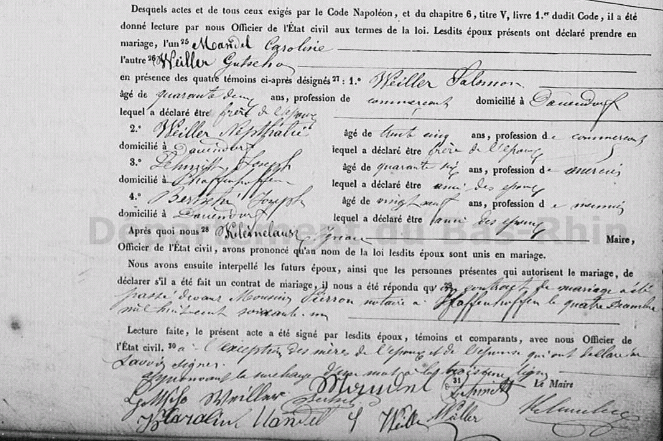 Desquels actes et de tous ceux exigés par le Code Napoléon, et du chapitre 6, titre V, livre 1.er dudit Code, il a été
donné lecture par nous Officier de l'État civil aux termes de la loi. Lesdits époux présents ont déclaré prendre en
mariage, l'un 25 Mandel Caroline
l'autre 26 Weiller Gutscho
en présence des quatre témoins ci-après désignés 27 : 1.º Weiller Salomon
âgé de quarante deux ans, profession de commerçant domicilié à Dauendorf
lequel a déclaré être frère de l'époux
2.º Weiller Nephtalie âgé de trente cinq ans, profession de commerçant
domicilié à Dauendorf lequel a déclaré être frère de l'époux
3.º Joseph âgé de quarante six ans, profession de
domicilié à Pfaffenhoffen lequel a déclaré être ami des époux
4.º Joseph âgé de vingt neuf ans, profession de
domicilié à Dauendorf lequel a déclaré être ami des époux
Après quoi nous 28 Ignace Maire,
Officier de l'État civil, avons prononcé qu'au nom de la loi lesdits époux sont unis en mariage.
Nous avons ensuite interpellé les futurs époux, ainsi que les personnes présentes qui autorisent le mariage, de
déclarer s'il a été fait un contrat de mariage, il nous a été répondu qu'un contrat de mariage a été
passé devant Monsieur Pierron notaire à Pfaffenhoffen le quatre
mil huit cent soixante un
Lecture faite, le présent acte a été signé par lesdits époux, témoins et comparants, avec nous Officier de
l'État civil. 30 à l'exception des mères de l'époux et de l'épouse qui ont déclaré ne
savoir signer.
approuvant la surcharge d'un mot à la troisième ligne
31 Le Maire
Weiller
Mandel Weiller Müller
Département du Bas-Rhin